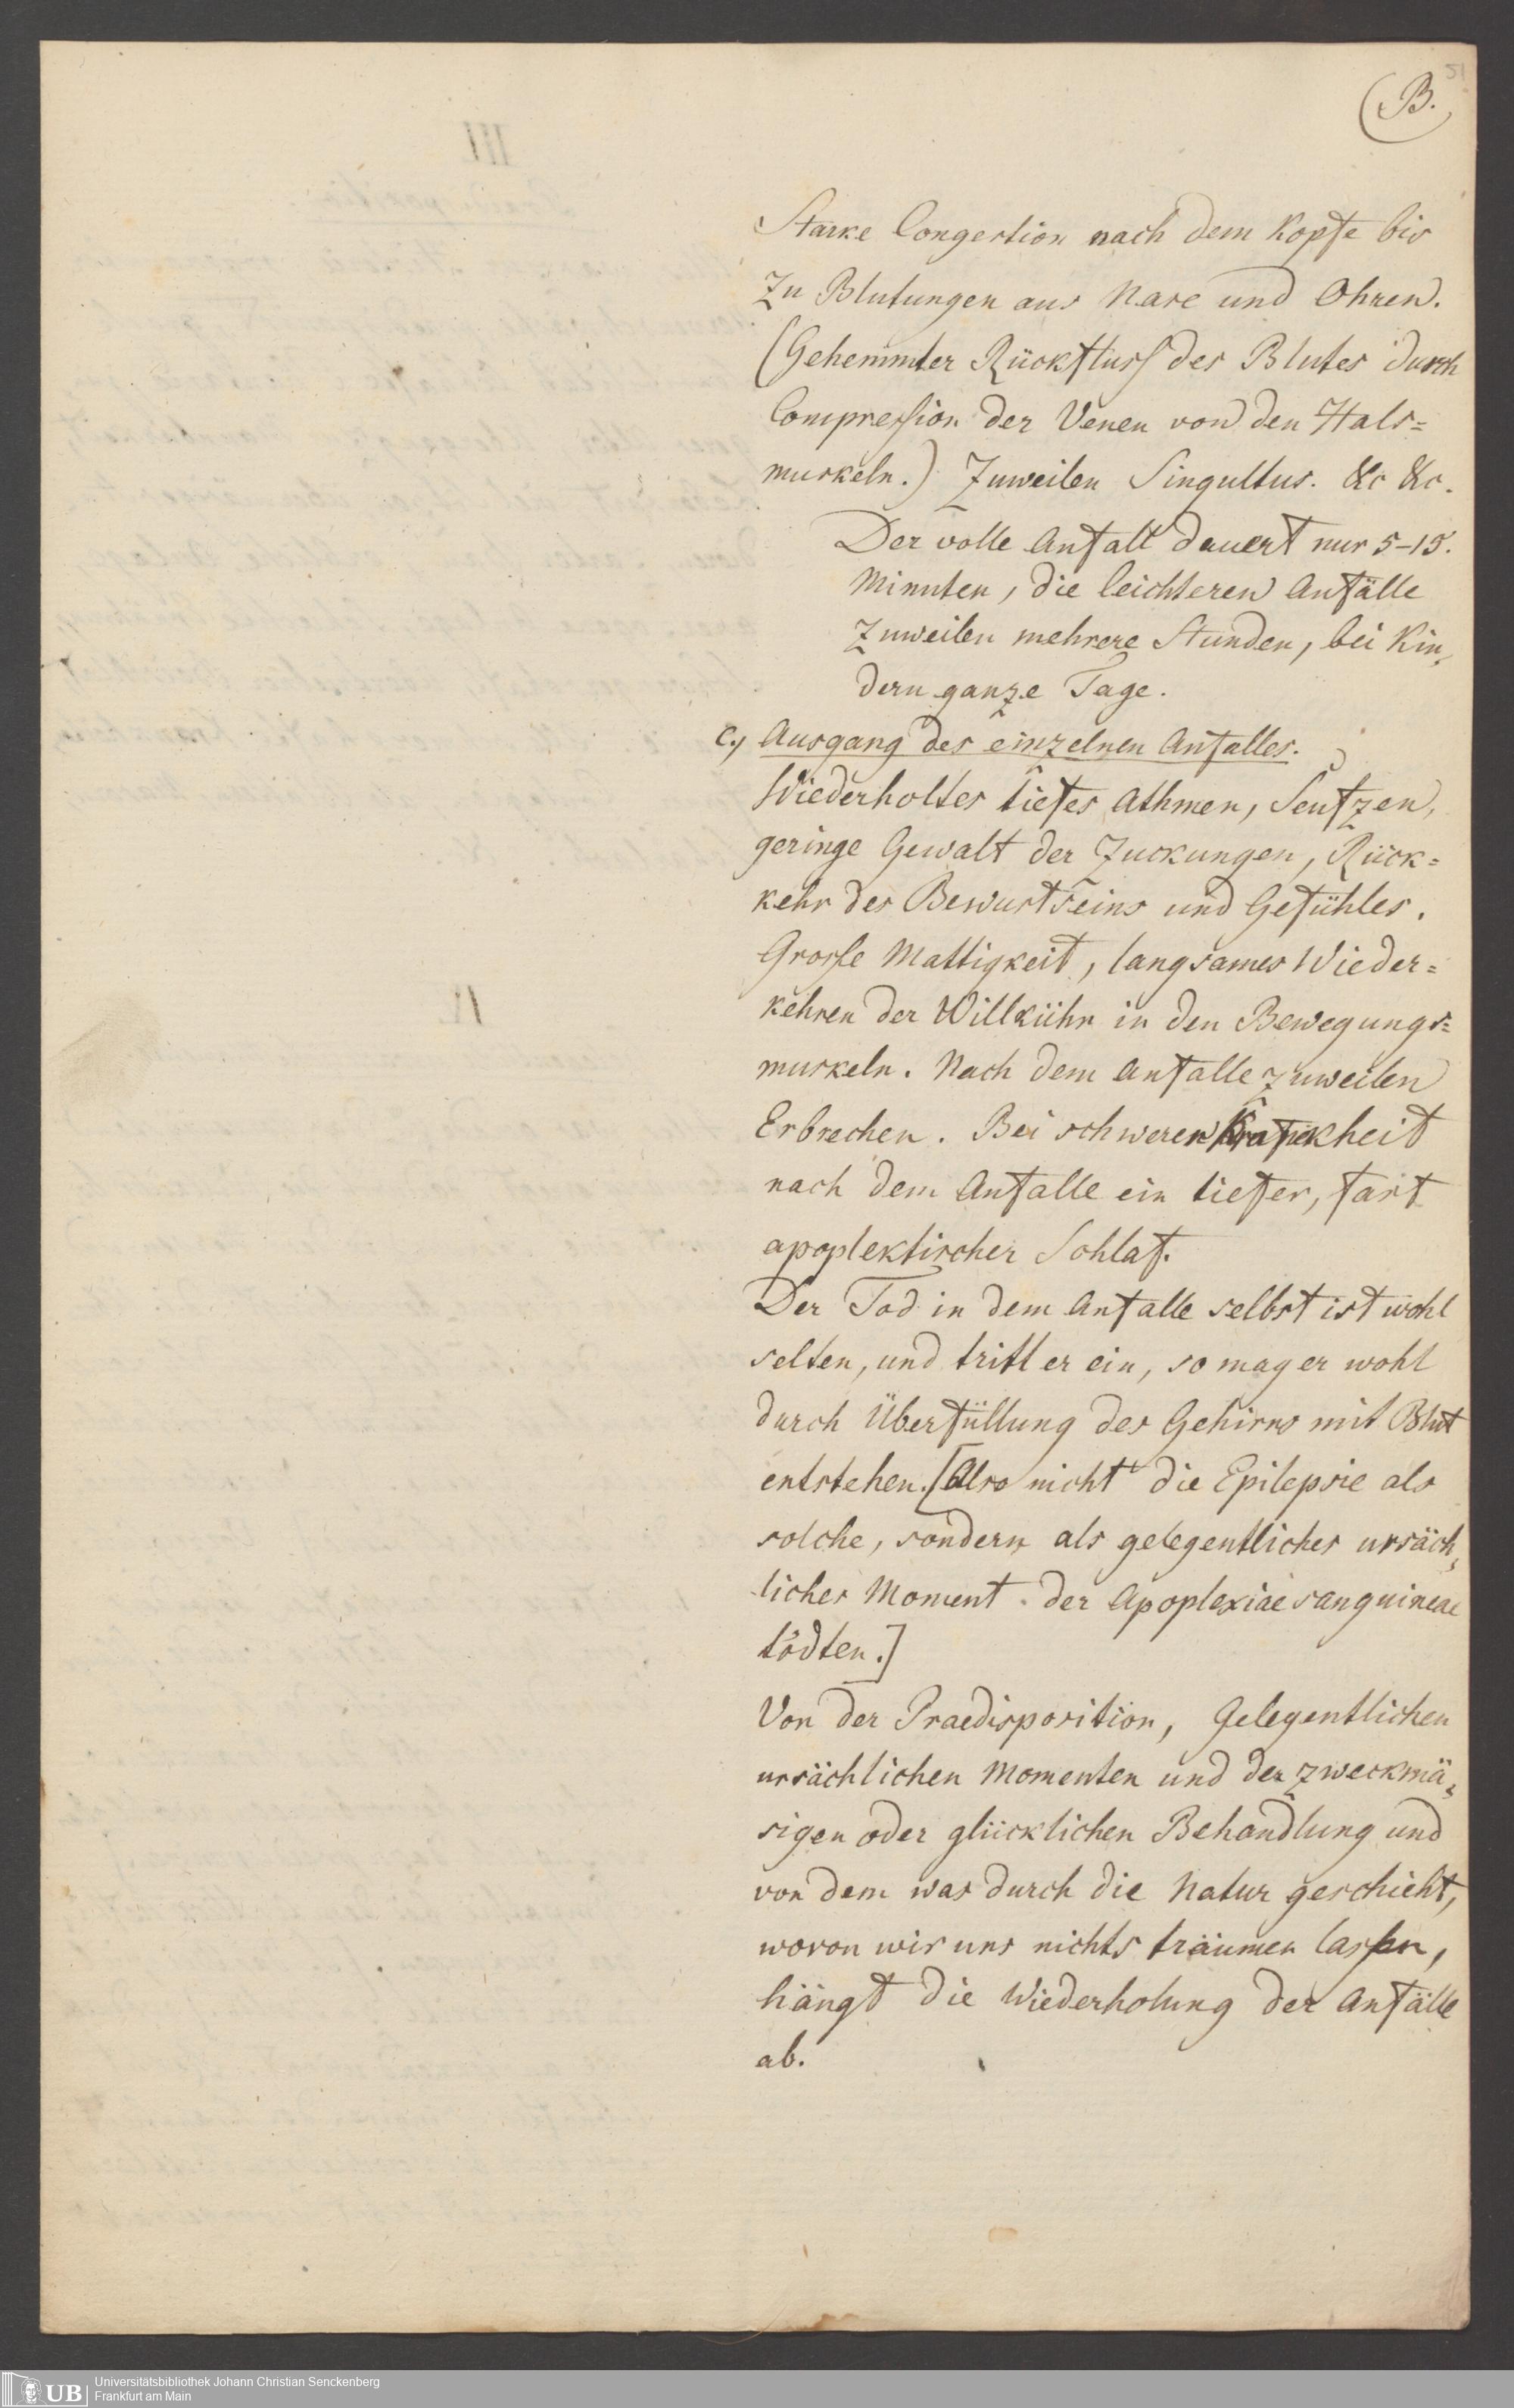 51
B.
Starke Congestion nach dem Kopfe bis
zu Blutungen aus Nase und Ohren.
(Gehemmter Rückfluss des Blutes durch
Compression der Venen von den Hals=
muskeln.) Zuweilen Singultus. &c &c.
Der volle Anfall dauert nur 5-15.
Minuten, die leichteren Anfälle
zuweilen mehrere Stunden, bei Kin,
dern ganze Tage.
c., Ausgang des einzelnen Anfalles.
Wiederholtes tiefes Athmen, Seufzen,
geringe Gewalt der Zuckungen, Rück=
kehr des Bewustseins und Gefühles.
Grosse Mattigkeit, langsames Wieder=
kehren der Willkühr in den Bewegungs=
muskeln. Nach dem Anfalle zuweilen
Erbrechen. Bei schwerer Krankheit
nach dem Anfalle ein tiefer, fast
apoplektischer Schlaf.
Der Tod in dem Anfalle selbst ist wohl
selten, und tritt er ein, so mag er wohl
durch Überfüllung des Gehirns mit Blut
entstehen. [Also nicht die Epilepsie als
solche, sondern als gelegentliches ursäch,
liches Moment der Apoplexiae sanguineae
tödten.]
Von der Praedisposition, Gelegentlichen
ursächlichen Momenten und der zweckmä,
sigen oder glücklichen Behandlung und
von dem was durch die Natur geschieht,
wovon wir uns nichts träumen lassen,
hängt die Wiederholung der Anfälle
ab.
UB
Universitätsbibliothek Johann Christian Senckenberg
Frankfurt am Main